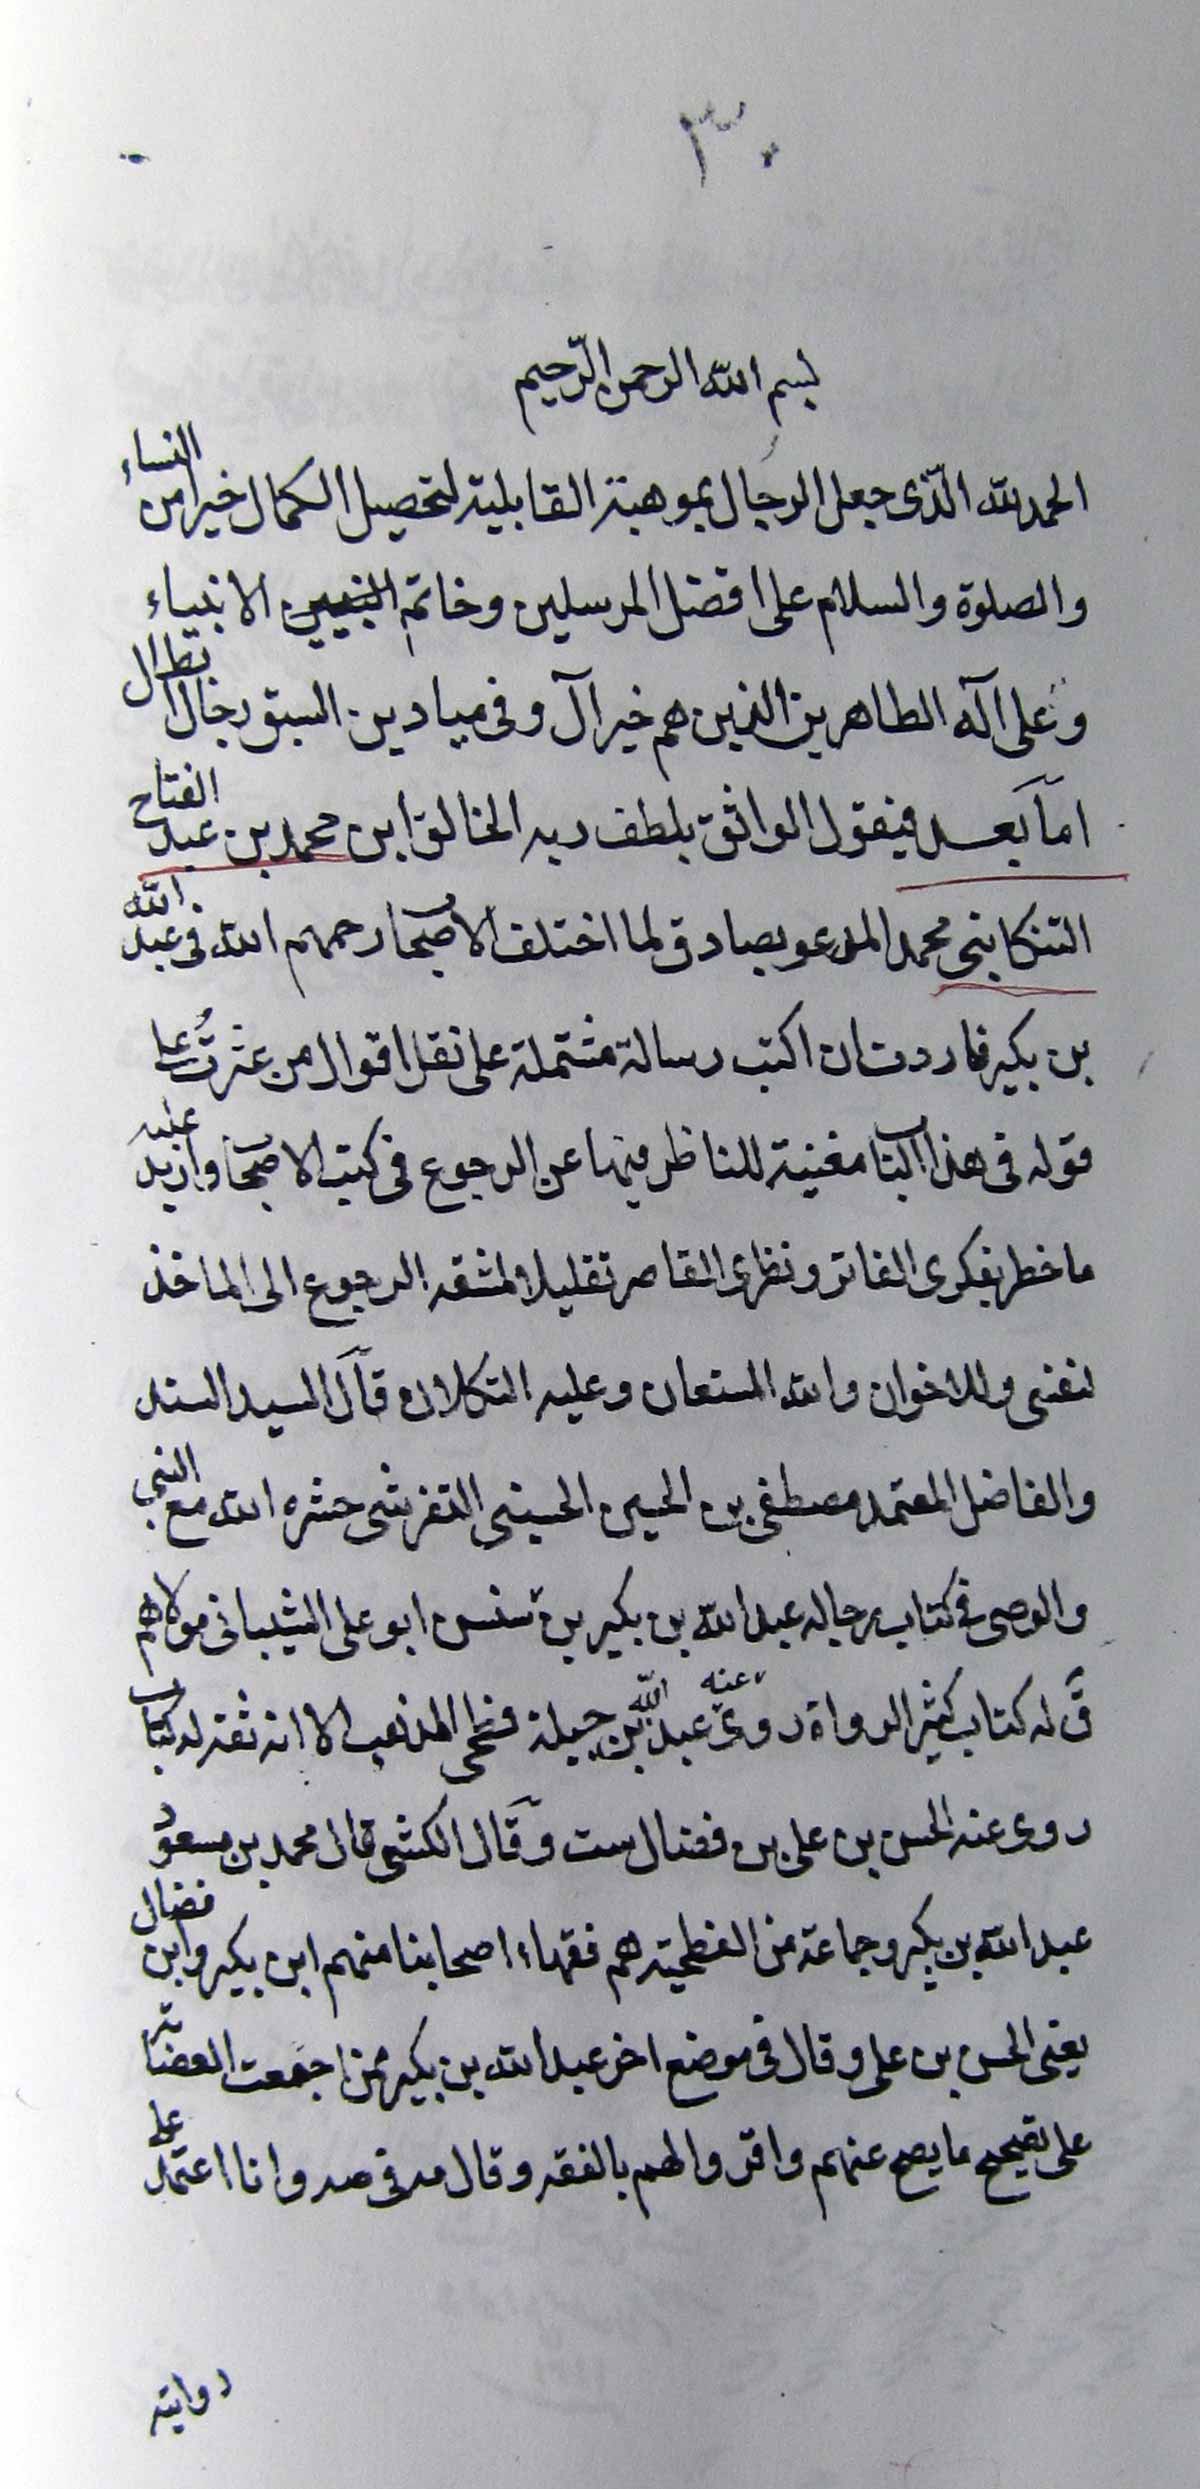 ٣٠
بسم الله الرحمن الرّحيم
الحمد لله الّذى جعل الرجال بموهبة القابلية لتحصيل الكمال خيرا من النساء
والصلوة والسلام على افضل المرسلين وخاتم النبيين الانبياء
وعلى آله الطاهرين الذين هم خير آل وفى ميادين السبق رجال ابطال
امّا بعد فيقول الواثق بلطف ربه الخالق ابن محمد بن عبد الفتاح
التنكابنى محمد المدعو بصادق لما اختلف الاصحاب رحمهم الله فى عبد الله
بن بكير فاردت ان اكتب رسالة مشتملة على نقل اقوال من عثرتُ على
قوله فى هذا الباب مغنية للناظر فيها عن الرجوع فى كتب الاصحاب وازيد عليه
ما خطر بفكرى الفاتر ونظرى القاصر تقليلا لمشقه الرجوع الى الماخذ
لنفسى وللاخوان والله المستعان وعليه التكلان قال السيد السند
والفاضل المعتمد مصطفى بن الحسين الحسينى التفرشى حشره الله مع النبى
والوصى فى كتاب رجاله عبد الله بن بكير بن سنسن ابو على الشيبانى مولاهم
ق له كتاب كثير الرواة روى عنه عبد الله بن جبلة فطحى المذهب الا انه ثقة له كتاب
روى عنه الحسن بن على بن فضال ست وقال الكشى قال محمد بن مسعود
عبد الله بن بكير وجماعة من الفطحية هم فقهاء اصحابنا منهم ابن بكير وابن فضال
يعنى الحسن بن على وقال فى موضع اخر عبد الله بن بكير ممن اجمعت العصابة
على تصحيح ما يصح عنهم واقروا لهم بالفقه وقال مه فى صه وانا اعتمد على
روايته